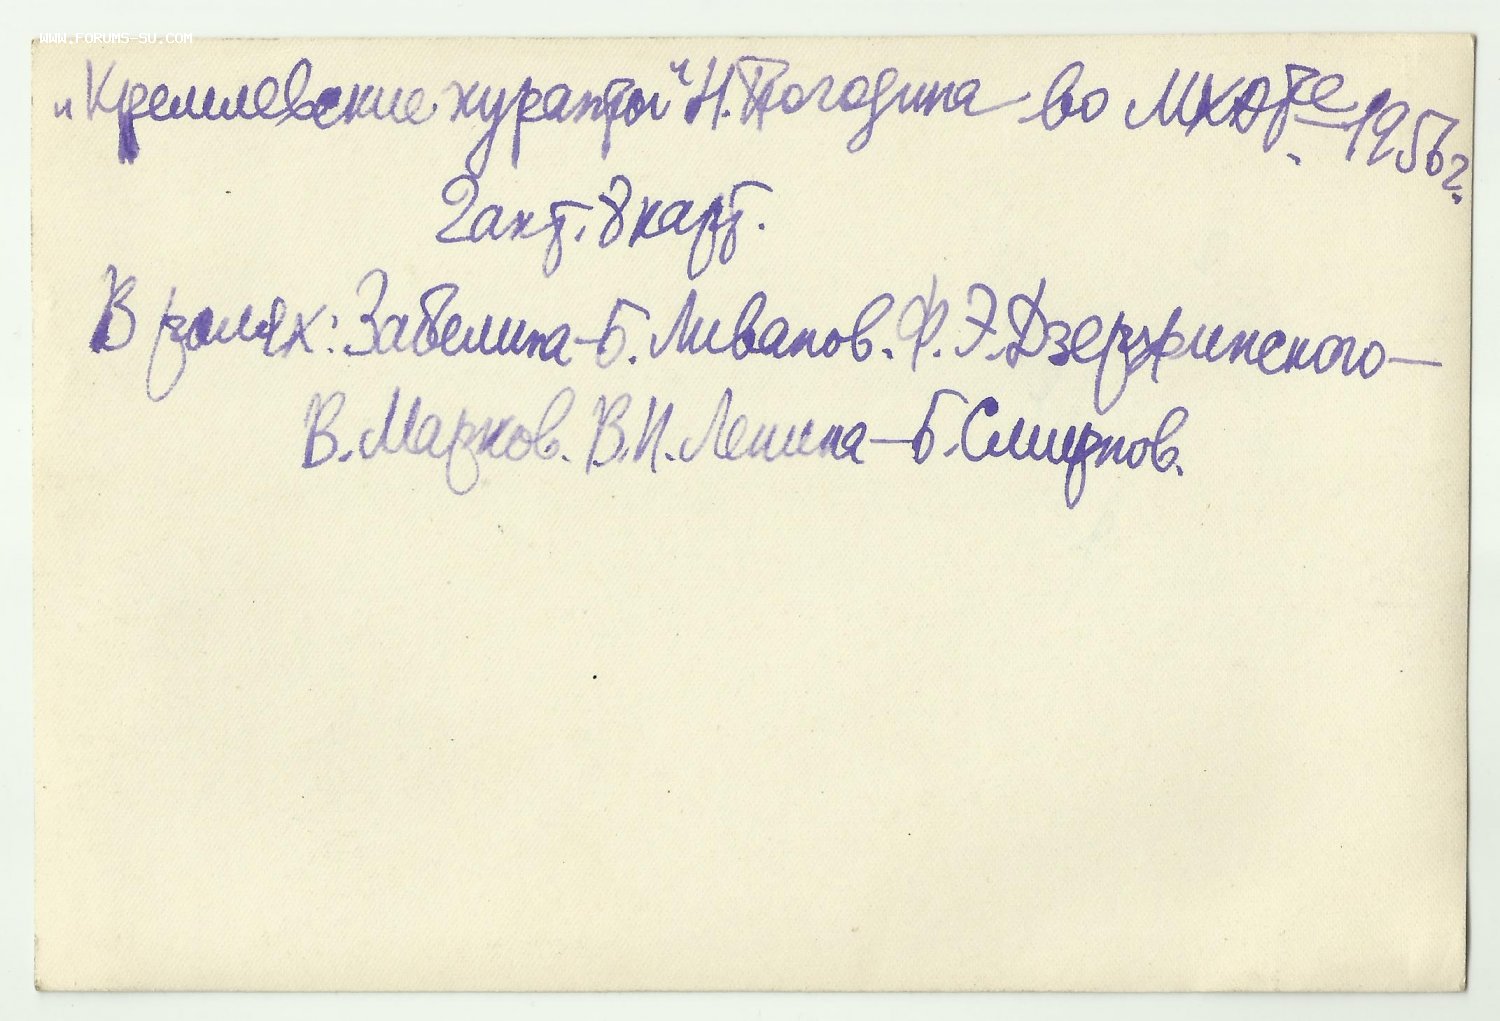 WWW.FORUMS-SU.COM
„Кремлевские куранты" Н. Погодина во МХАТе. 1956 г.
2 акт. 8 карт.
В ролях: Забелина – Б. Ливанов. Ф. Э. Дзержинского –
В. Марков. В. И. Ленина – Б. Смирнов.